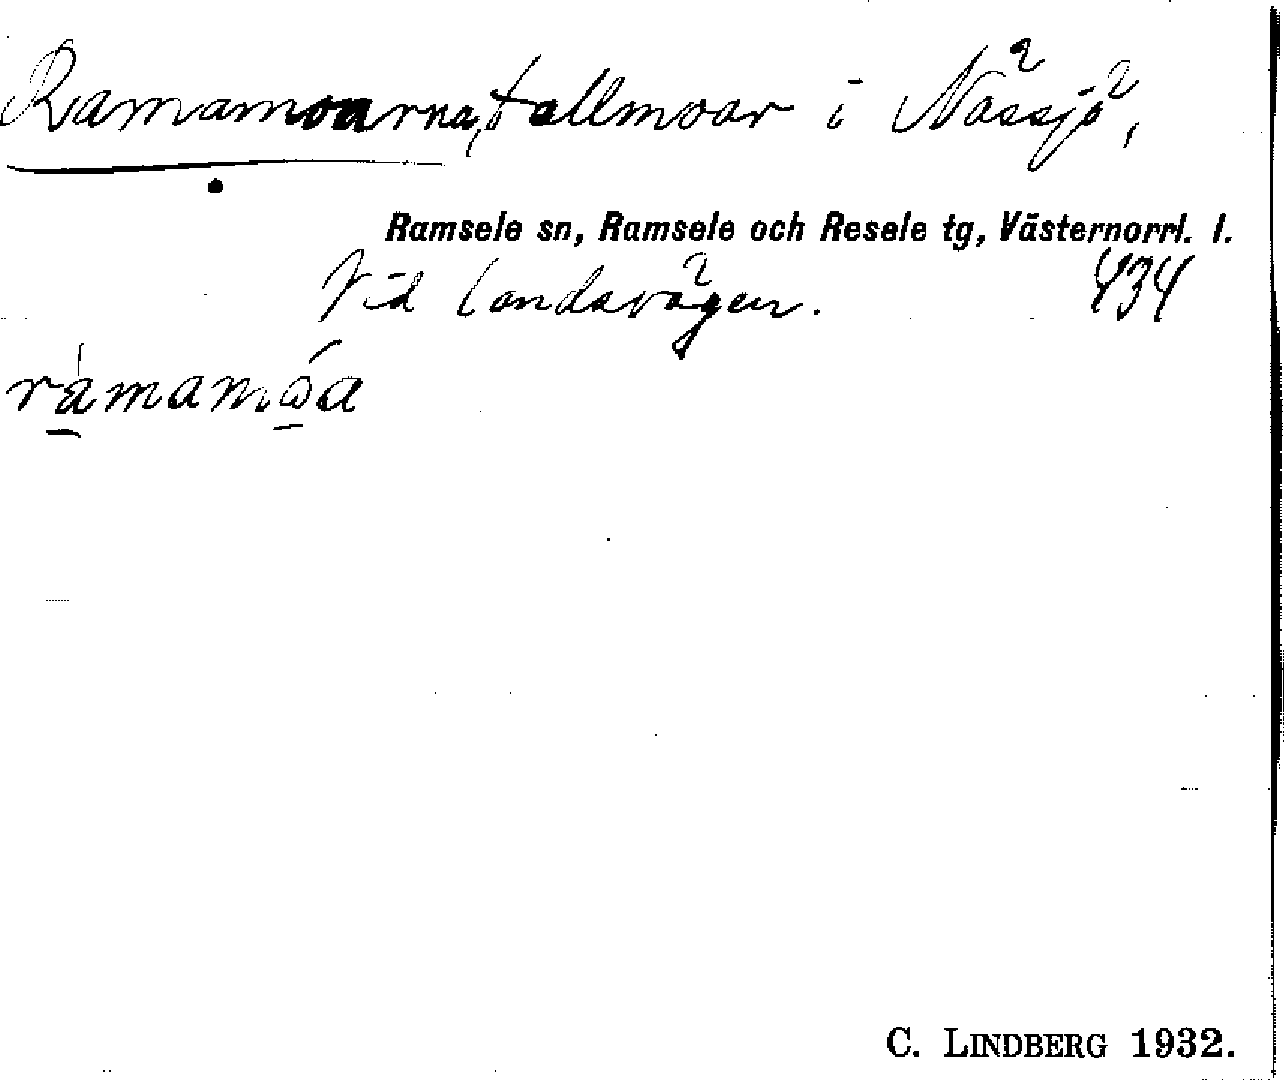 Ramamoarna, tallmoar i Nässjö,
Ramsele sn, Ramsele och Resele tg, Västernorrl. l.
Vid landsvägen. 434
ramamóa
C. LINDBERG 1932.